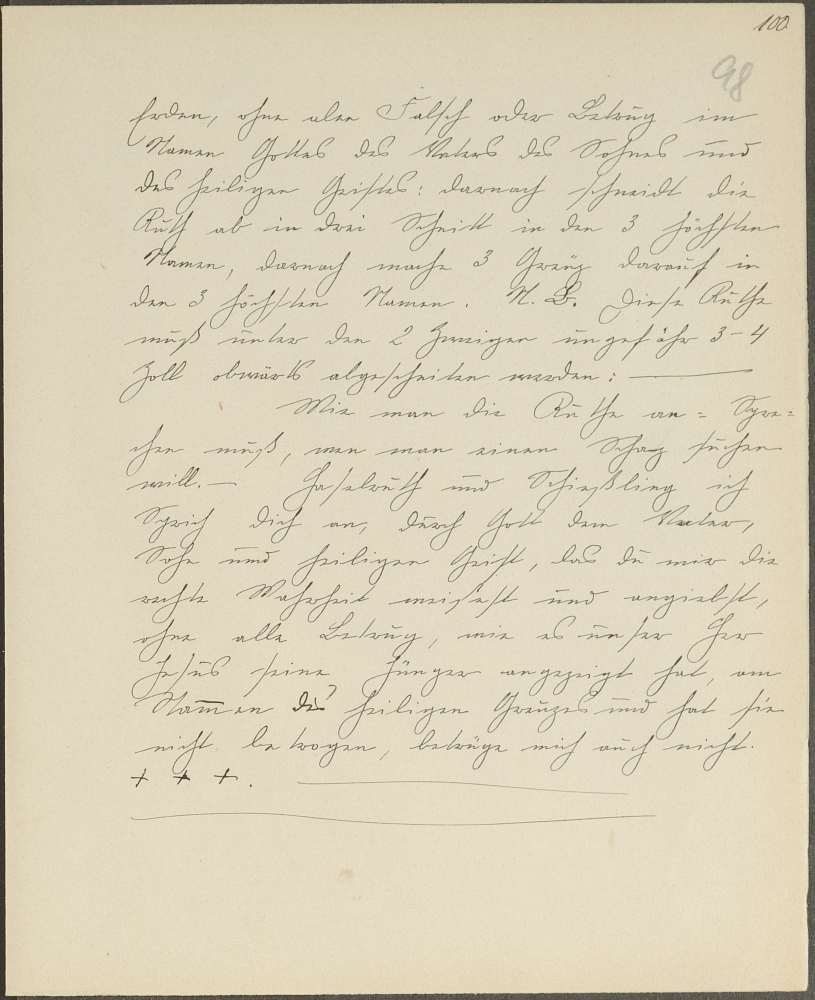 100
98
Erden, ohne alen Falsch oder Betrug im
Namen Gottes des Vaters des Sohnes und
des heiligen Geistes: darnach schneidt die
Ruth ab in drei Schnitt in den 3 höchsten
Namen, darnach mache 3 Greuz darauf in
den 3 höchsten Namen. N. B. Diese Ruthe
muß unter den 2 Zweigen ungefähr 3-4
Zoll abwärts abgeschniten werden: —
Wie man die Ruthe an= Spre=
chen muß, wen man einen Schaz suchen
will. — Haselruth und Schießling ich
Sprich dich an, durch Gott dem Vater,
Sohn und heiligen Geist, das du mir die
rechte Wahrheit weisest und angiebst,
ohne alle Betrug, wie es unser Her
Jesus seine Jünger angezeigt hat, am
Stammen des heiligen Greuzes und hat sie
nicht betrogen, betrüge mich auch nicht.
+ + +.